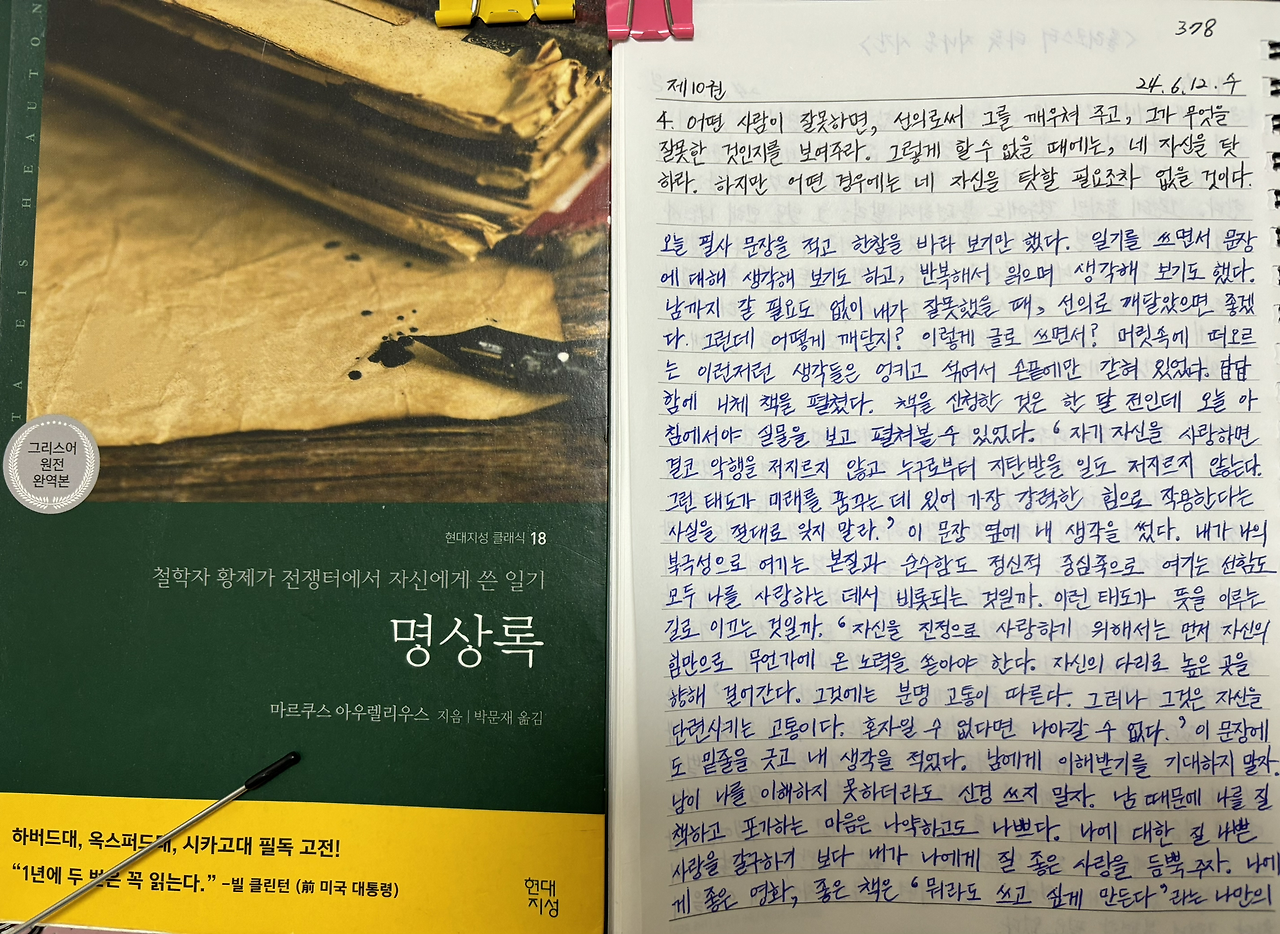 TA EIS HEAUTON
그리스어
원전
완역본
현대지성 클래식 18
철학자 황제가 전쟁터에서 자신에게 쓴 일기
명상록
마르쿠스 아우렐리우스 지음 | 박문재 옮김
하버드대, 옥스퍼드대, 시카고대 필독 고전!
“1년에 두 번은 꼭 읽는다.” -빌 클린턴 (前 미국 대통령)
현대
지성
378
제10권 24.6.12.수
4. 어떤 사람이 잘못하면, 선의로써 그를 깨우쳐 주고, 그가 무엇을
잘못한 것인지를 보여주라. 그렇게 할 수 없을 때에는, 네 자신을 탓
하라. 하지만 어떤 경우에는 네 자신을 탓할 필요조차 없을 것이다.
오늘 필사 문장을 적고 한참을 바라 보기만 했다. 일기를 쓰면서 문장
에 대해 생각해 보기도 하고, 반복해서 읽으며 생각해 보기도 했다.
남까지 갈 필요도 없이 내가 잘못했을 때, 선의로 깨달았으면 좋겠
다. 그런데 어떻게 깨닫지? 이렇게 글로 쓰면서? 머릿속에 떠오르
는 이런저런 생각들은 엉키고 섞여서 손끝에만 갇혀 있었다. 답답
함에 니체 책을 펼쳤다. 책을 신청한 것은 한 달 전인데 오늘 아
침에서야 실물을 보고 펼쳐볼 수 있었다. ‘자기 자신을 사랑하면
결코 악행을 저지르지 않고 누구로부터 지탄받을 일도 저지르지 않는다.
그런 태도가 미래를 꿈꾸는 데 있어 가장 강력한 힘으로 작용한다는
사실을 절대로 잊지 말라.’ 이 문장 옆에 내 생각을 썼다. 내가 나의
북극성으로 여기는 본질과 순수함도 정신적 중심축으로 여기는 선함도
모두 나를 사랑하는 데서 비롯되는 것일까. 이런 태도가 뜻을 이루는
길로 이끄는 것일까. ‘자신을 진정으로 사랑하기 위해서는 먼저 자신의
힘만으로 무언가에 온 노력을 쏟아야 한다. 자신의 다리로 높은 곳을
향해 걸어간다. 그것에는 분명 고통이 따른다. 그러나 그것은 자신을
단련시키는 고통이다. 혼자일 수 없다면 나아갈 수 없다.’ 이 문장에
도 밑줄을 긋고 내 생각을 적었다. 남에게 이해받기를 기대하지 말자.
남이 나를 이해하지 못하더라도 신경 쓰지 말자. 남 때문에 나를 질
책하고 포기하는 마음은 나약하고도 나쁘다. 나에 대한 질 나쁜
사랑을 갈구하기 보다 내가 나에게 질 좋은 사랑을 듬뿍 주자. 나에
게 좋은 영화, 좋은 책은 ‘뭐라도 쓰고 싶게 만든다’라는 나만의